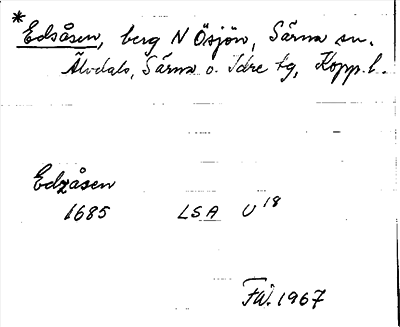 *Edsåsen, berg N Ösjön, Särna sn.
Älvdals, Särna o. Idre tg, Kopp. l.
Edzåsen
1685 LSA U 18
FW. 1967